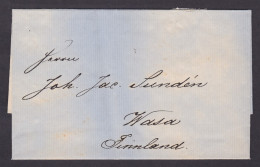 Herrn
Joh. Jac. Sundén
Wasa
Finnland.